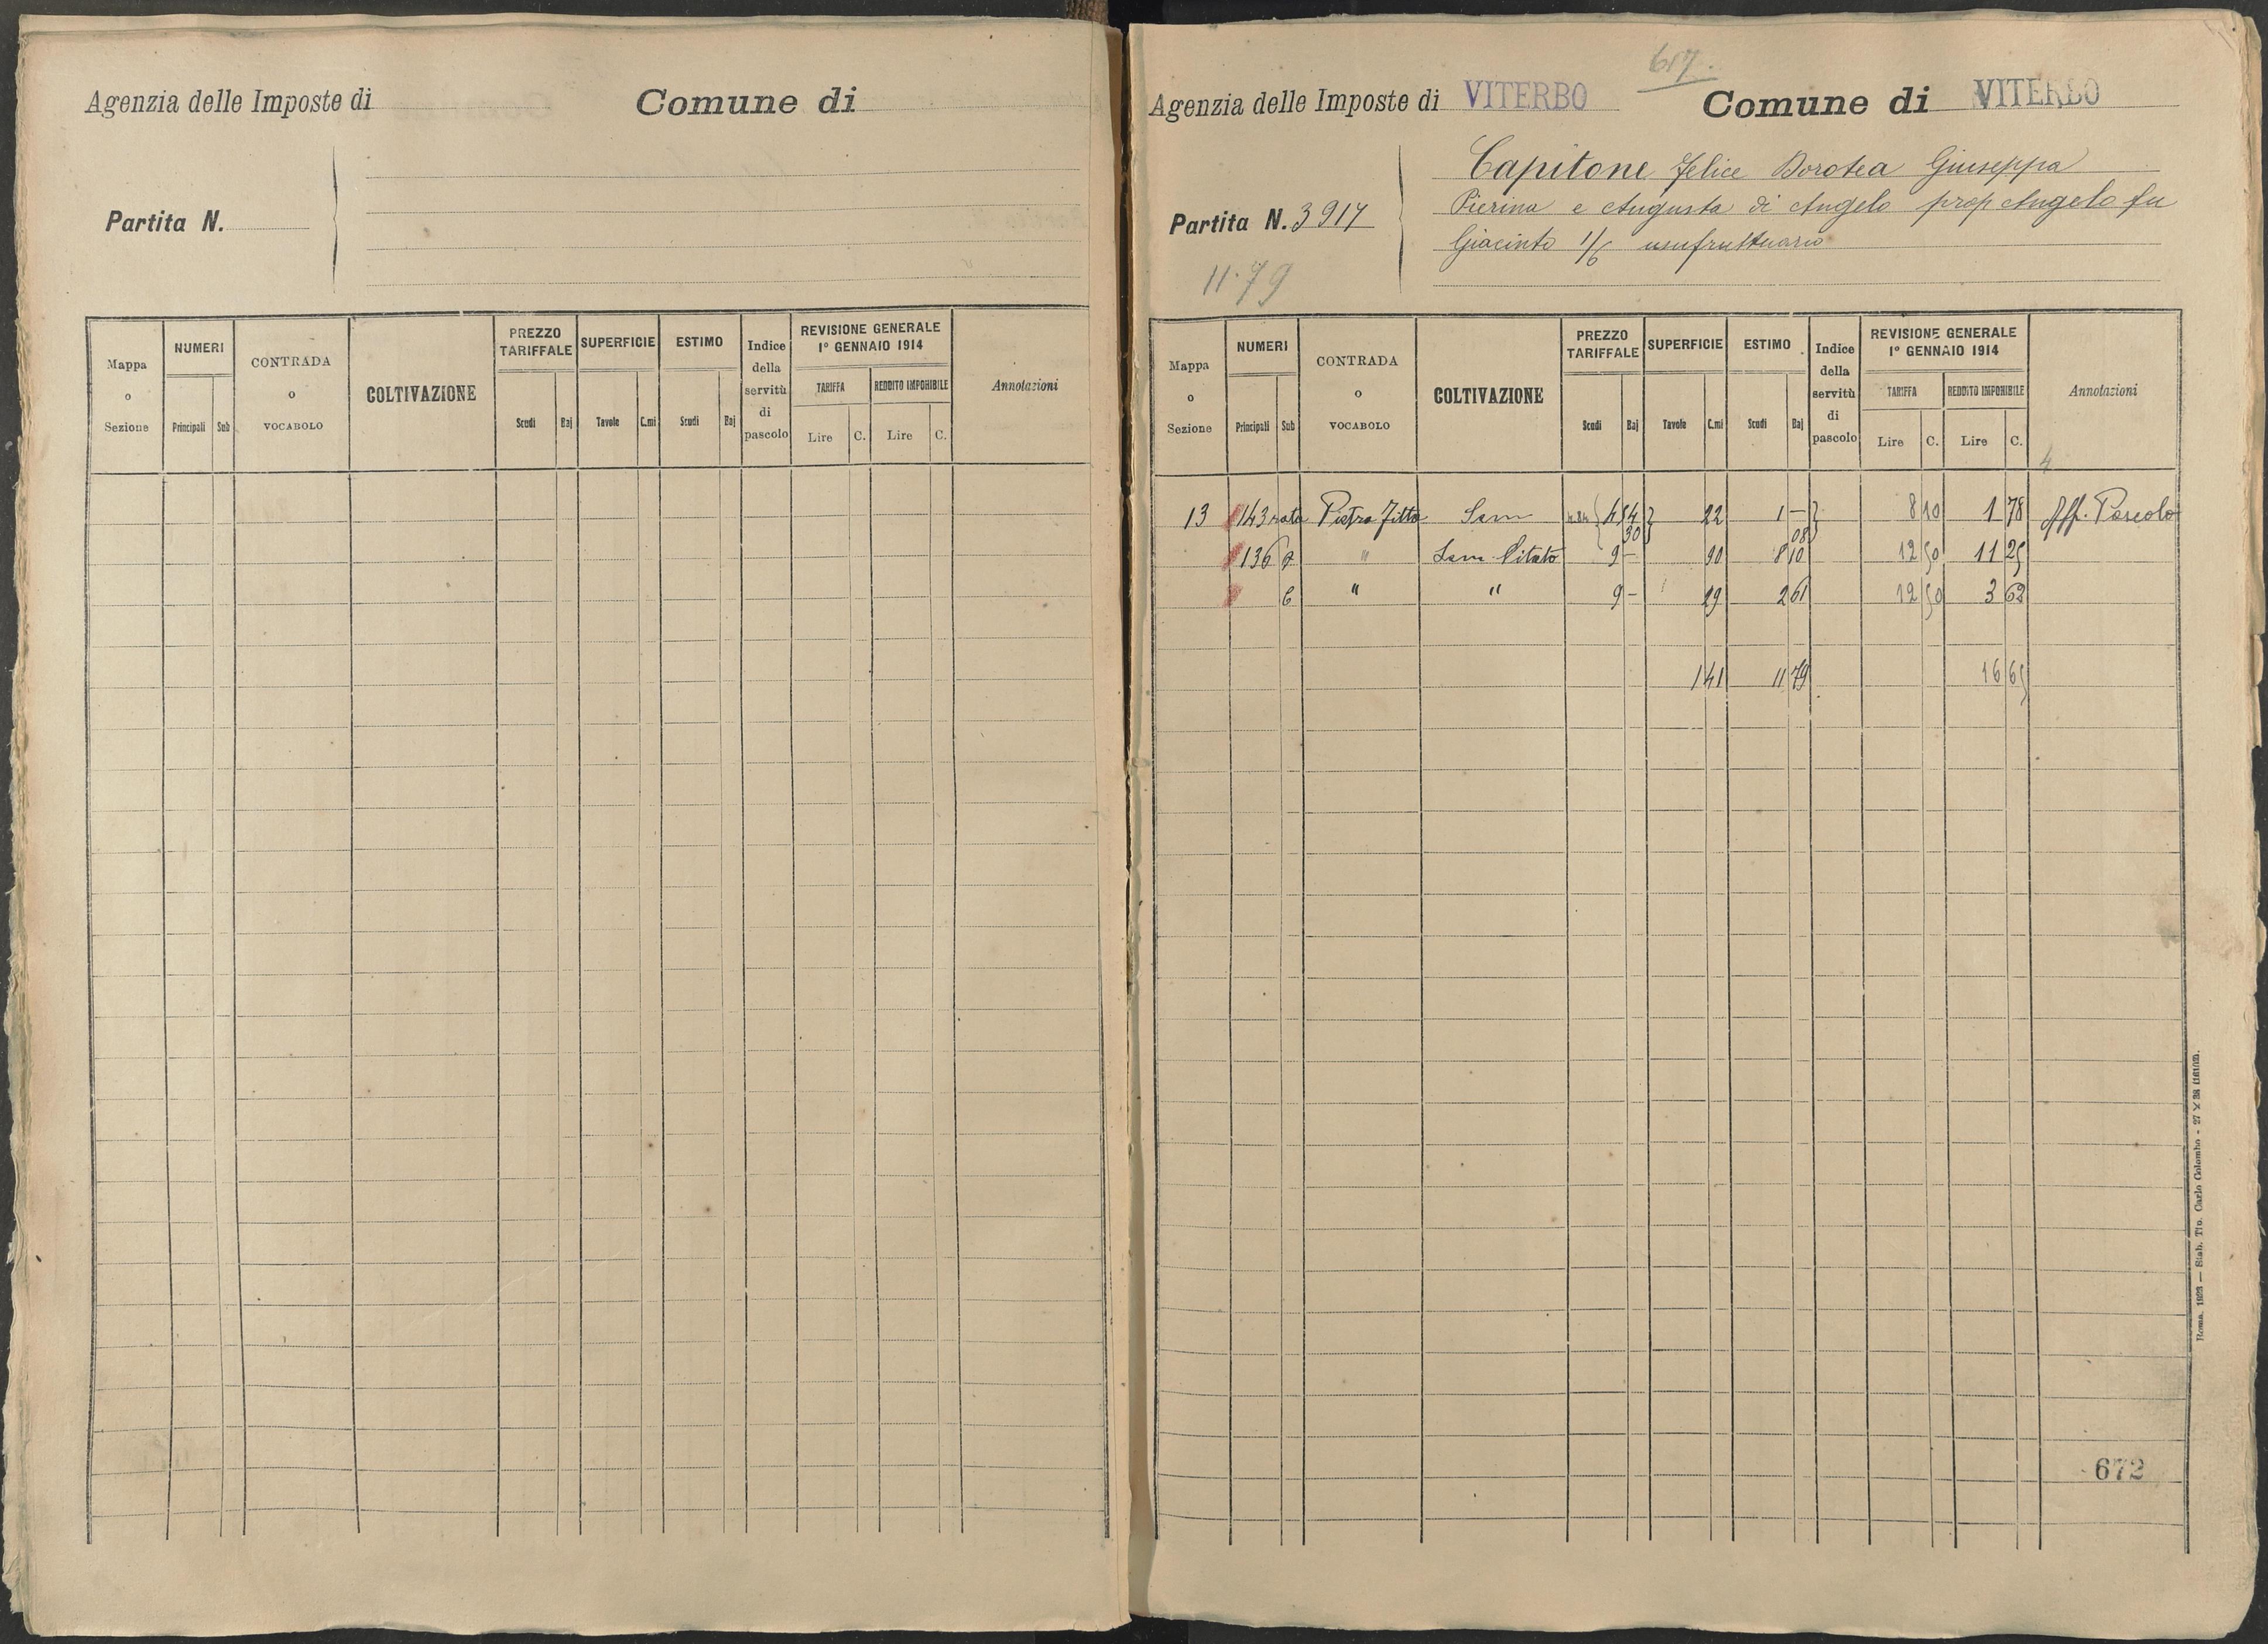 Agenzia delle Imposte di Comune di
Partita N.
Mappa o Sezione NUMERI Principali Sub CONTRADA o VOCABOLO COLTIVAZIONE PREZZO TARIFFALE Scudi Baj SUPERFICIE Tavole C.mi ESTIMO Scudi Baj Indice della servitù di pascolo REVISIONE GENERALE 1º GENNAIO 1914 TARIFFA Lire C. REDDITO IMPONIBILE Lire C. Annotazioni
617.
Agenzia delle Imposte di VITERBO Comune di VITERBO
Capitone Felice Dorotea Giuseppa
Pierina e Augusta di Angelo prop Angelo fu
Giacinto 1/6 usufruttuario
Partita N. 3917
11.79
Mappa o Sezione NUMERI Principali Sub CONTRADA o VOCABOLO COLTIVAZIONE PREZZO TARIFFALE Scudi Baj SUPERFICIE Tavole C.mi ESTIMO Scudi Baj Indice della servitù di pascolo REVISIONE GENERALE 1º GENNAIO 1914 TARIFFA Lire C. REDDITO IMPONIBILE Lire C. Annotazioni
4
13 143 rata Pietra Fitta Sem 4.84 4 54 22 1 — 8 10 1 78 Aff. Pascolo
30 08
136 " Sem Vitato 9 — 90 8 10 12 50 11 25
" " 9 — 29 2 61 12 50 3 62
1 41 11 79 16 65
672
Roma, 1923 — Stab. Tip. Carlo Colombo -